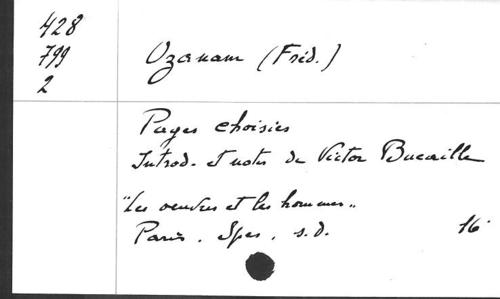 428
799
2
Ozanam (Fréd.)
Pages choisies
Introd. et notes de Victor Bucaille
"Les œuvres et les hommes"
Paris. Spes. s.d. 16°